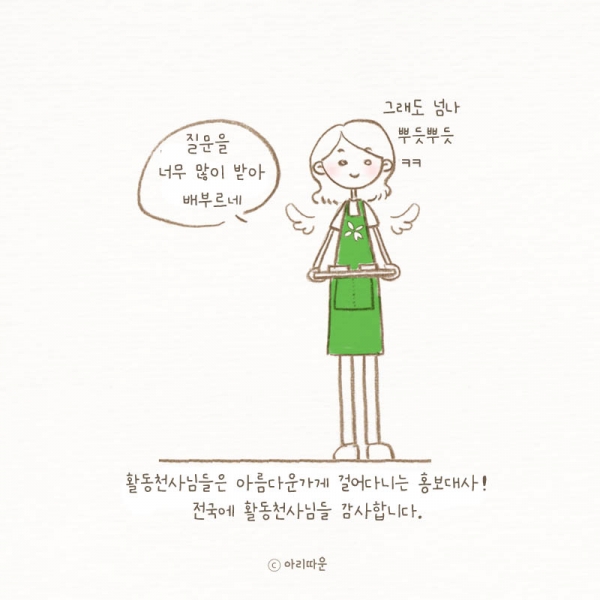 질문을
너무 많이 받아
배부르네
그래도 넘나
뿌듯뿌듯
ㅋㅋ
활동천사님들은 아름다운가게 걸어다니는 홍보대사!
전국에 활동천사님들 감사합니다.
ⓒ 아리따운